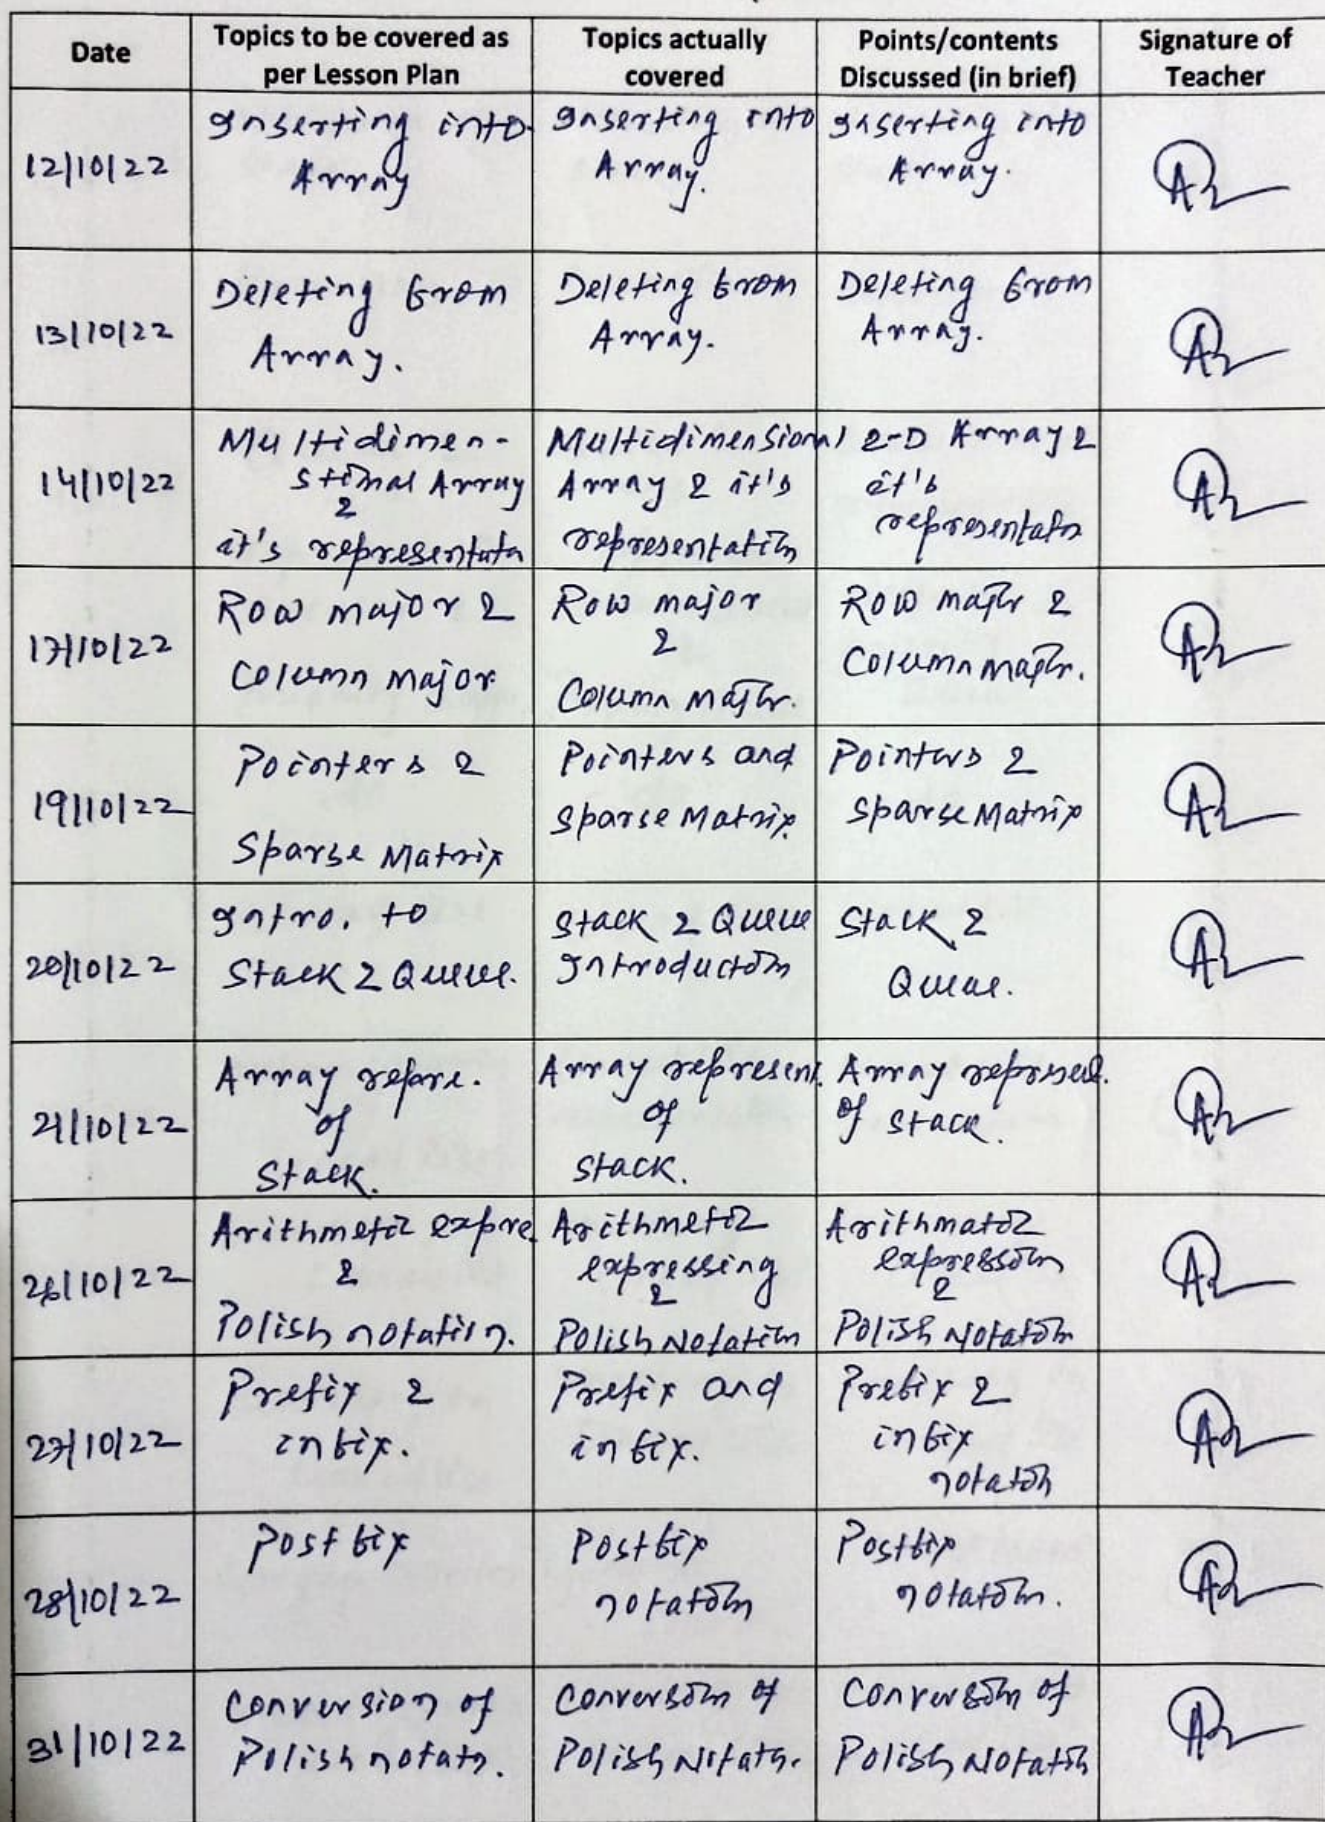 Date
Topics to be covered as
per Lesson Plan
Topics actually
covered
Points/contents
Discussed (in brief)
Signature of
Teacher
12/10/22
Inserting into
Array
Inserting into
Array.
Inserting into
Array.
13/10/22
Deleting from
Array.
Deleting from
Array.
Deleting from
Array.
14/10/22
Multidimen-
sional Array
&
it's representatn
Multidimensional
Array & it's
representation
2-D Array &
it's
representatn
17/10/22
Row major &
Column major
Row major
&
Column major.
Row major &
Column major.
19/10/22
Pointers &
Sparse Matrix
Pointers and
Sparse Matrix
Pointers &
Sparse Matrix
20/10/22
Intro. to
Stack & Queue.
Stack & Queue
Introduction
Stack &
Queue.
21/10/22
Array repre.
of
Stack.
Array represent.
of
Stack.
Array represe.
of stack.
26/10/22
Arithmetic expre
&
Polish notation.
Arithmetic
expressing
&
Polish Notation
Arithmatic
expression
&
Polish Notation
27/10/22
Prefix &
infix.
Prefix and
infix.
Prefix &
infix
notation
28/10/22
Postfix
Postfix
notation
Postfix
notation.
31/10/22
Conversion of
Polish notatn.
Conversion of
Polish Notatn.
Conversion of
Polish Notation